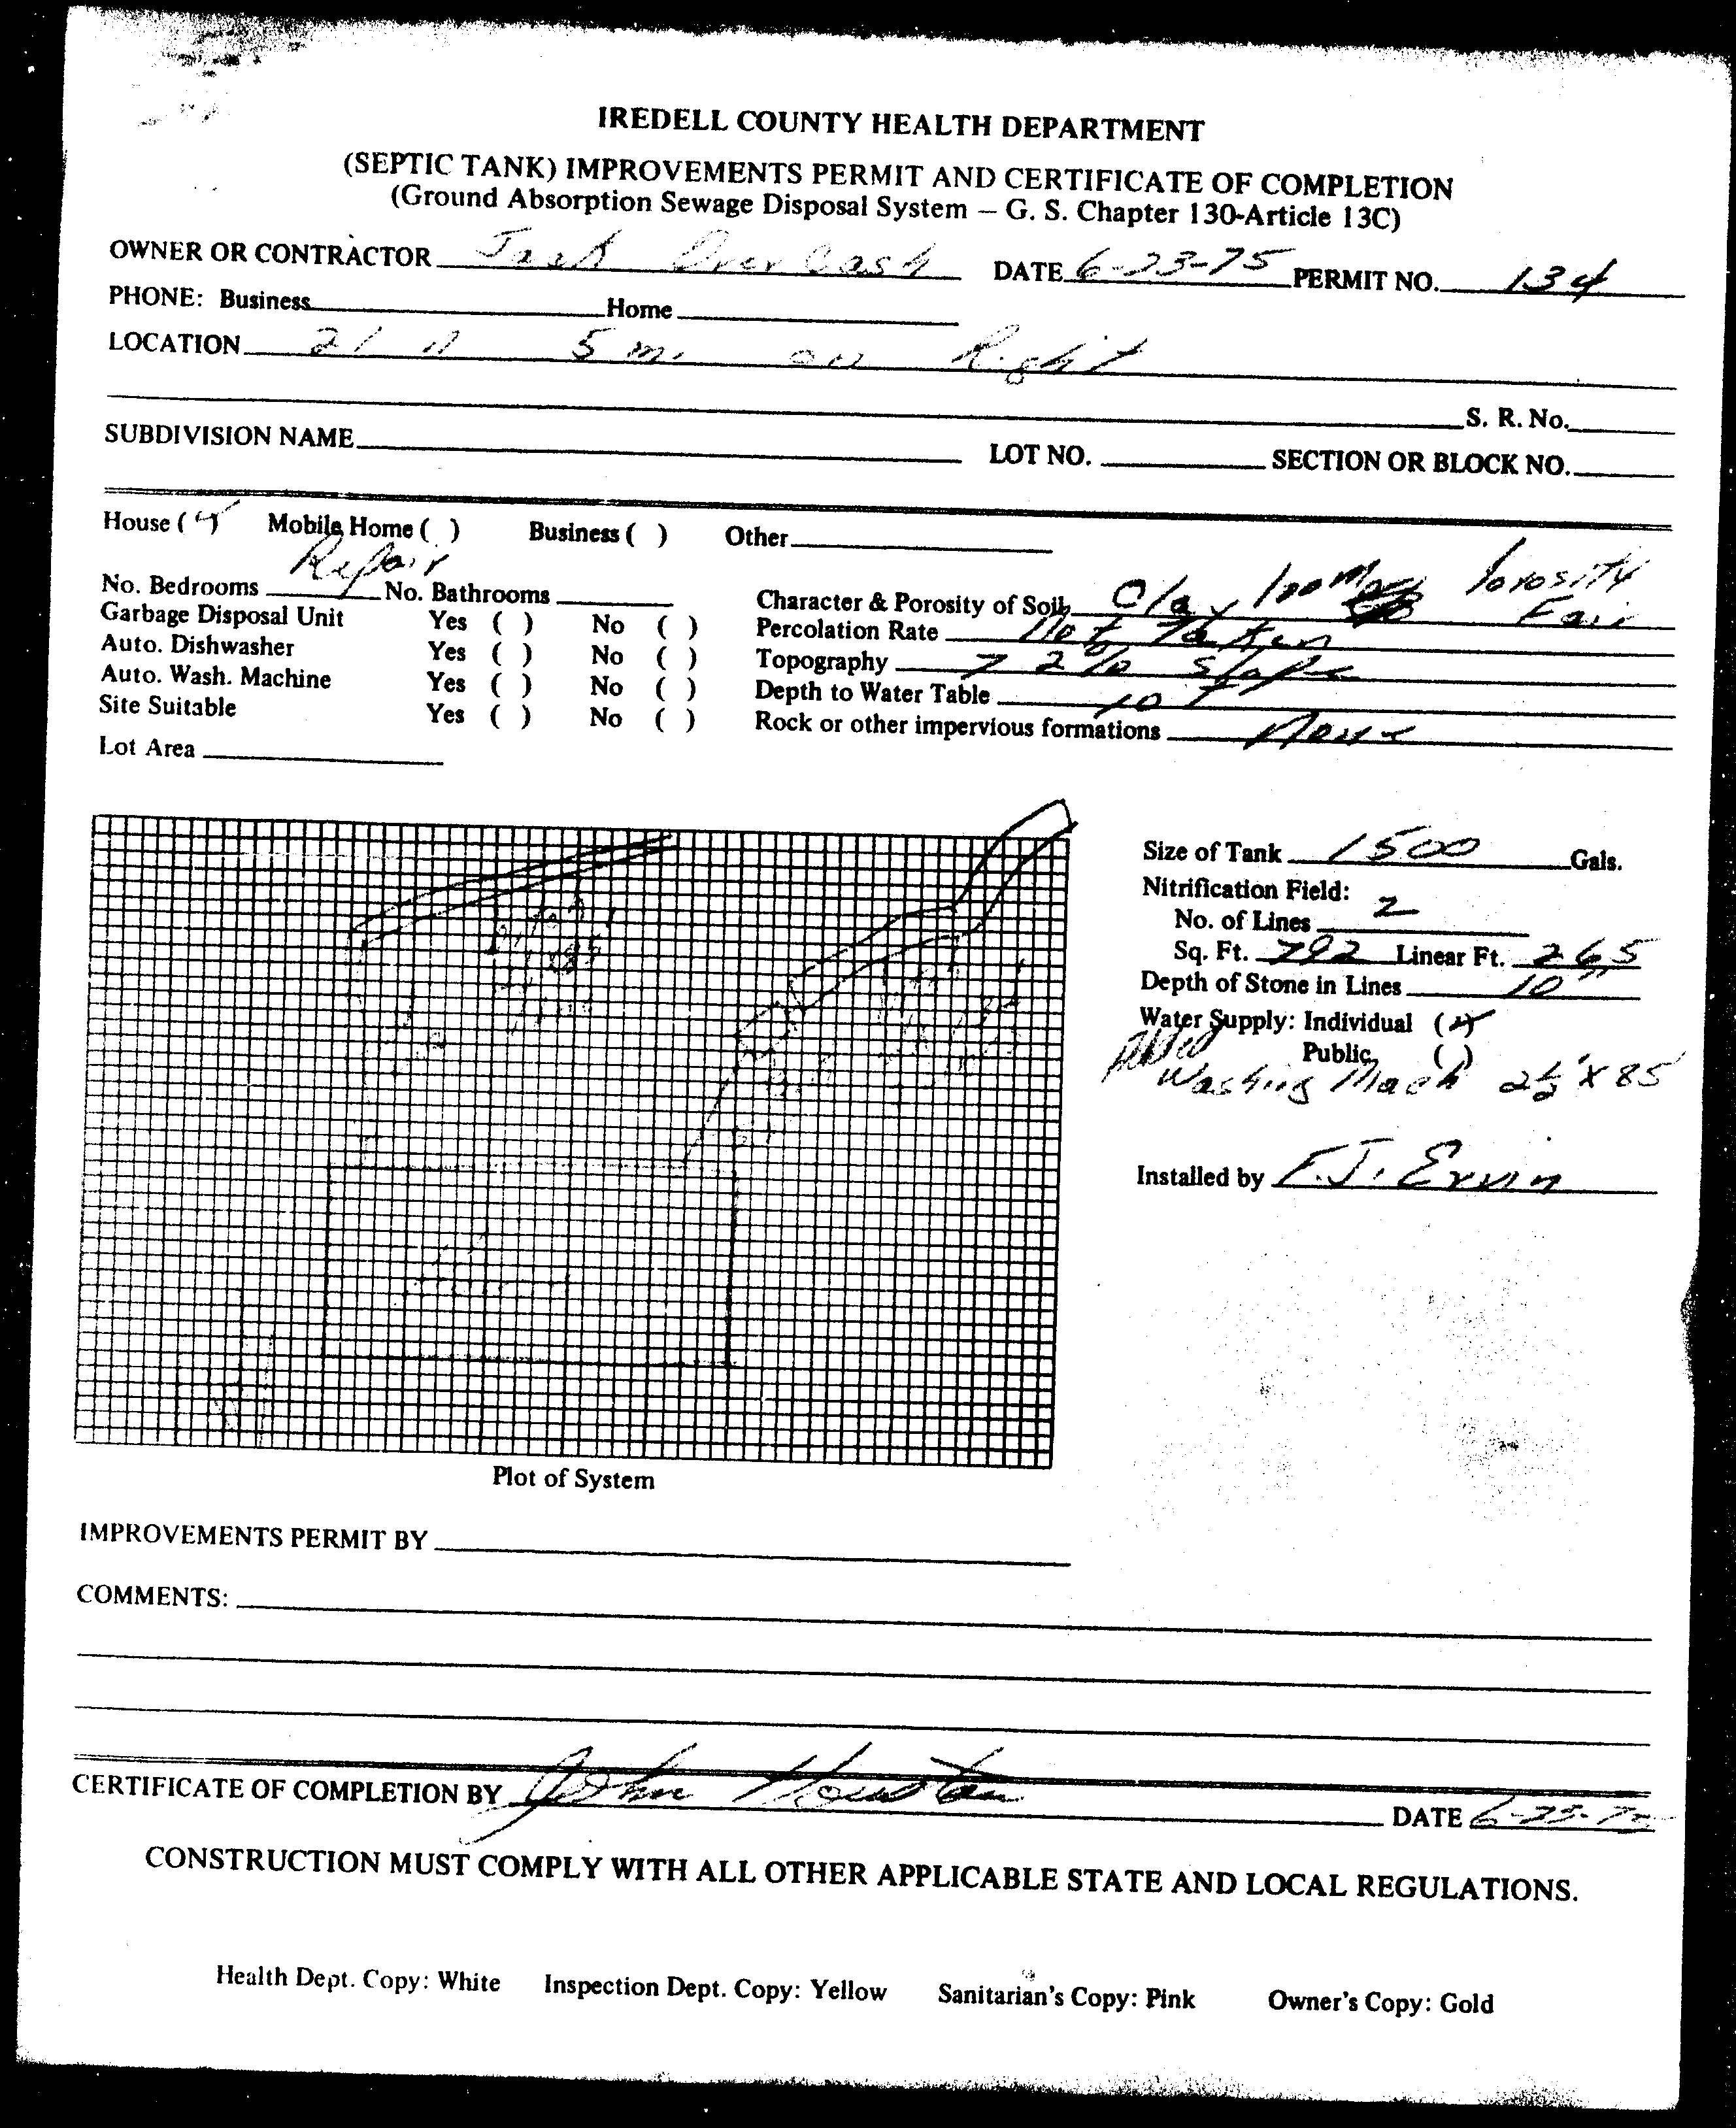 IREDELL COUNTY HEALTH DEPARTMENT
(SEPTIC TANK) IMPROVEMENTS PERMIT AND CERTIFICATE OF COMPLETION
(Ground Absorption Sewage Disposal System – G. S. Chapter 130-Article 13C)
OWNER OR CONTRACTOR Jack Overcash DATE 6-23-75 PERMIT NO. 134
PHONE: Business Home
LOCATION 21 N 5 mi on Right
S. R. No.
SUBDIVISION NAME LOT NO. SECTION OR BLOCK NO.
House ( ) Mobile Home ( ) Business ( ) Other
Repair
No. Bedrooms No. Bathrooms Character & Porosity of Soil Clay loom Porosity Fair
Garbage Disposal Unit Yes ( ) No ( ) Percolation Rate Not Taken
Auto. Dishwasher Yes ( ) No ( ) Topography 72% slope
Auto. Wash. Machine Yes ( ) No ( ) Depth to Water Table 10 +
Site Suitable Yes ( ) No ( ) Rock or other impervious formations None
Lot Area
Size of Tank 1500 Gals.
Nitrification Field:
No. of Lines 2
Sq. Ft. 792 Linear Ft. 265
Depth of Stone in Lines 10"
Water Supply: Individual (x)
Public ( )
Added
Washing Mach 2½' X 85
Installed by F.J. Ervin
Plot of System
IMPROVEMENTS PERMIT BY
COMMENTS:
CERTIFICATE OF COMPLETION BY John Houston DATE 6-25-75
CONSTRUCTION MUST COMPLY WITH ALL OTHER APPLICABLE STATE AND LOCAL REGULATIONS.
Health Dept. Copy: White Inspection Dept. Copy: Yellow Sanitarian's Copy: Pink Owner's Copy: Gold